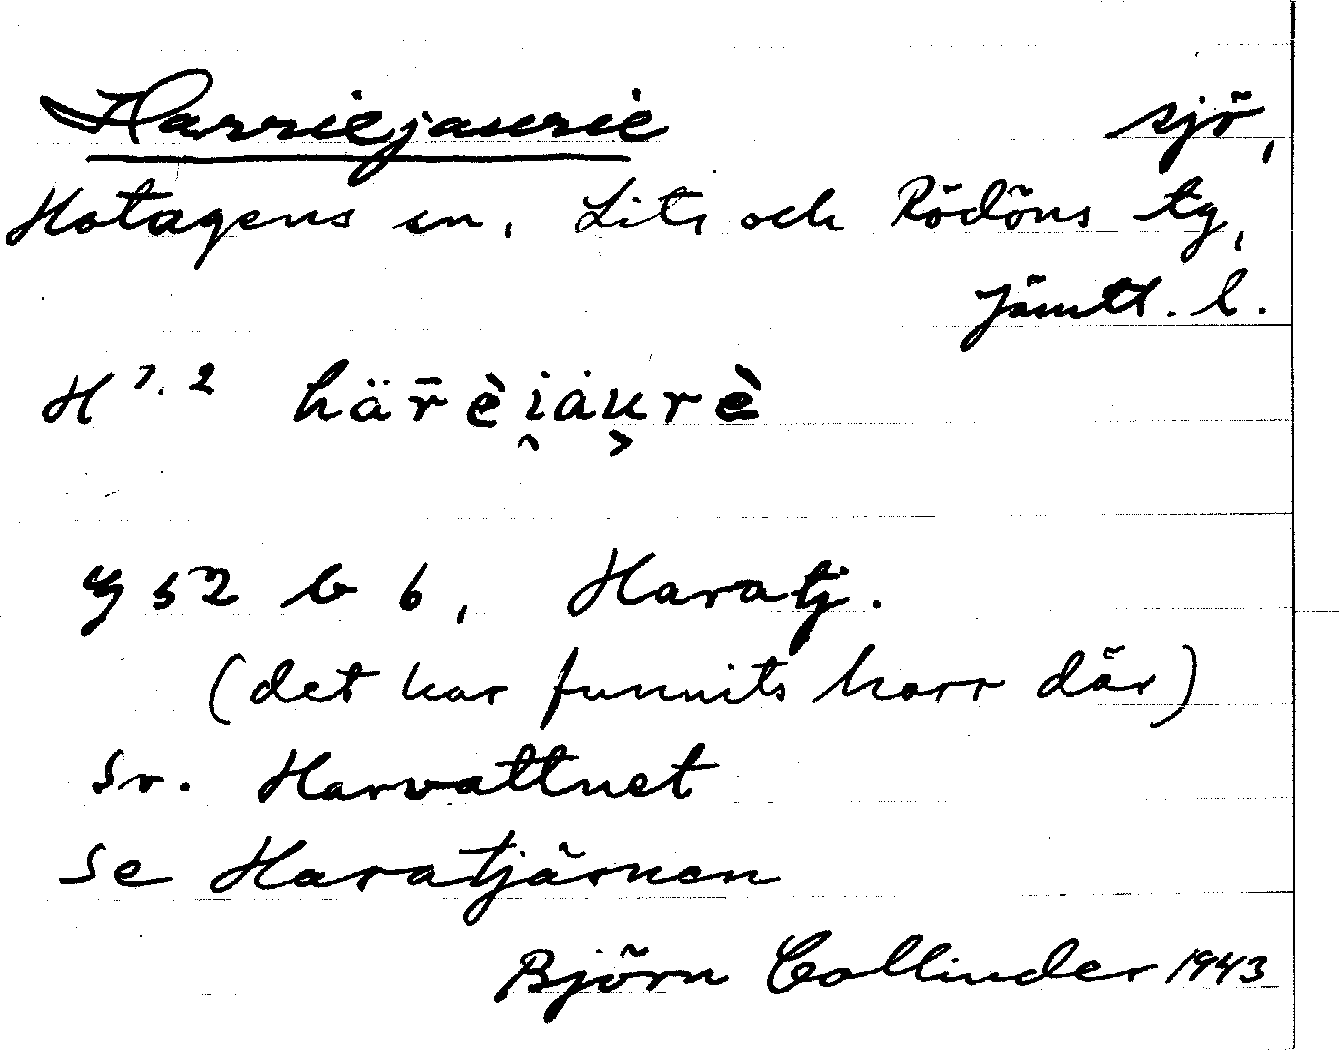 Harriejaurie sjö,
Hotagens sn, Lits och Rödöns tg,
Jämtl. l.
H 7.2 här̄èi̭ȧu̬rè
G 52 b 6, Haratj.
(det har funnits harr där)
Sv. Harvattnet
Se Haratjärnen
Björn Collinder 1943